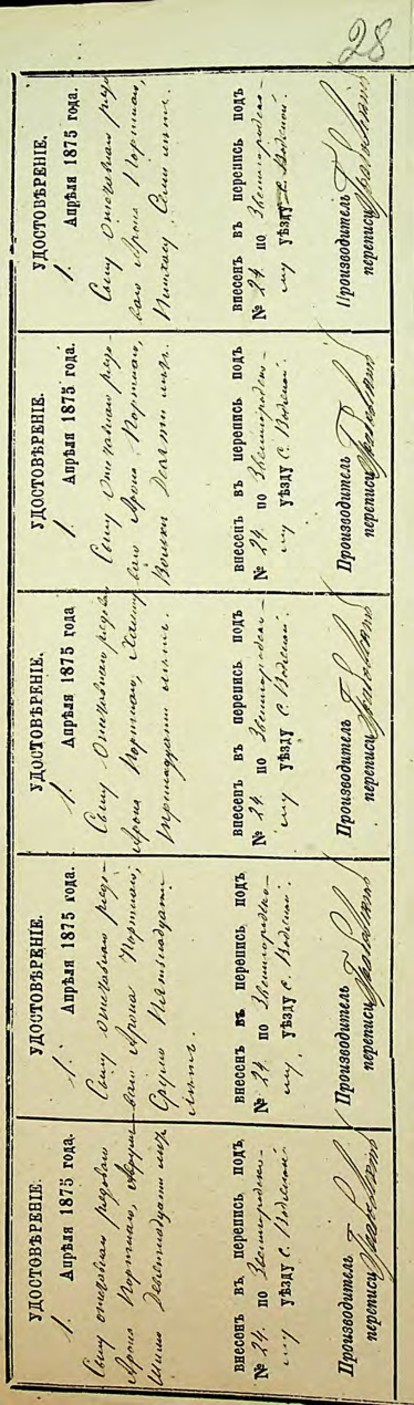 28
УДОСТОВѢРЕНІЕ.
1. Апрѣля 1875 года.
Сыну отставнаго рядоваго
Арона Портнаго,
Девятнадцати лѣтъ
внесенъ въ перепись подъ
№ 24. по Звенигородско-
му уѣзду с. Водяной.
Производитель
переписи
УДОСТОВѢРЕНІЕ.
1. Апрѣля 1875 года.
Сыну отставнаго рядо-
ваго Арона Портнаго,
Срулю Пятнадцати
лѣтъ.
внесенъ въ перепись подъ
№ 24. по Звенигородско-
му уѣзду с. Водяной.
Производитель
переписи
УДОСТОВѢРЕНІЕ.
1. Апрѣля 1875 года
Сыну отставнаго рядоваго
Арона Портнаго,
тринадцати лѣтъ.
внесенъ въ перепись подъ
№ 24. по Звенигородско-
му уѣзду с. Водяной.
Производитель
переписи
УДОСТОВѢРЕНІЕ.
1. Апрѣля 1875 года.
Сыну отставнаго рядо-
ваго Арона Портнаго,
Девяти лѣтъ.
внесенъ въ перепись подъ
№ 24. по Звенигородско-
му уѣзду с. Водяной.
Производитель
переписи
УДОСТОВѢРЕНІЕ.
1. Апрѣля 1875 года.
Сыну отставнаго рядо-
ваго Арона Портнаго,
Семи лѣтъ.
внесенъ въ перепись подъ
№ 24 по Звенигородско-
му уѣзду с. Водяной.
Производитель
переписи